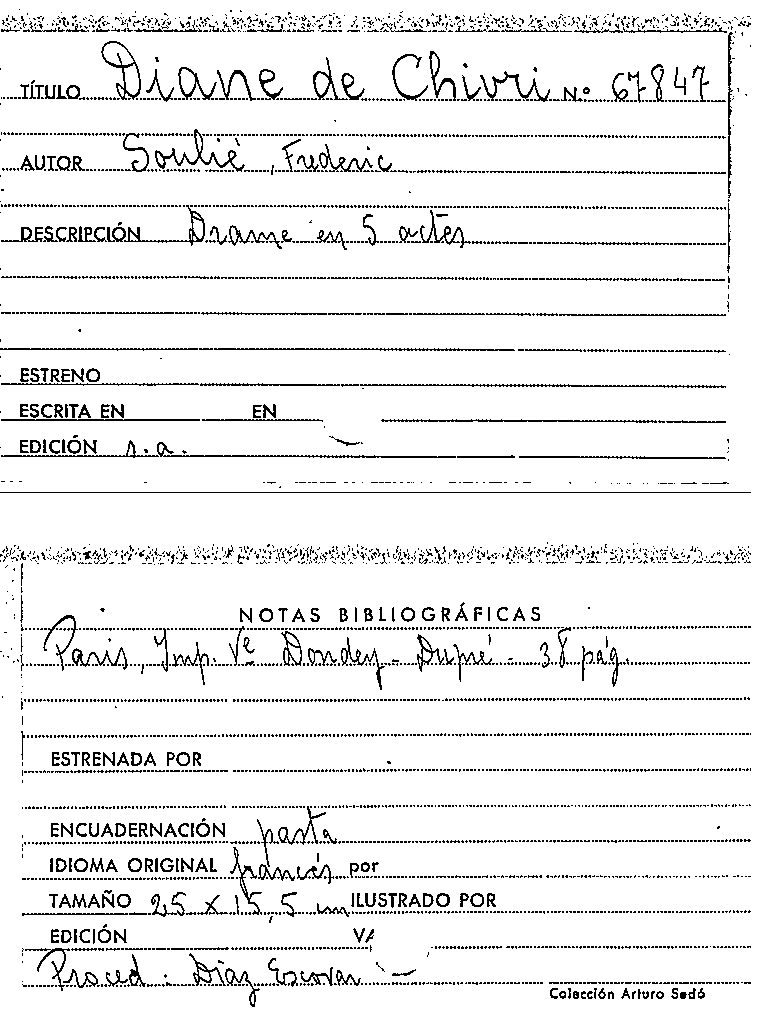 TÍTULO Diane de Chivri Nº 67847
AUTOR Soulié, Frederic
DESCRIPCIÓN Drame en 5 actes
ESTRENO
ESCRITA EN EN
EDICIÓN s.a.
NOTAS BIBLIOGRÁFICAS
Paris, Imp. Vᵉ Dondey-Dupré - 38 pág.
ESTRENADA POR
ENCUADERNACIÓN pasta
IDIOMA ORIGINAL francés por
TAMAÑO 25 x 15,5 cm ILUSTRADO POR
EDICIÓN
Proced. Diaz Escovar -
Colección Arturo Sedó